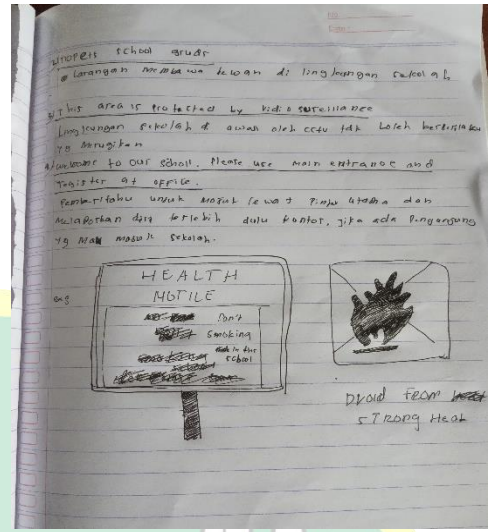 school grads
Larangan membawa hewan di lingkungan sekolah
This area is protected by vidio sureillance
Lingkungan sekolah d awasi oleh cctv tdk boleh berprilaku
yg merugikan
welcome to our school. Please use main entrance and
register at office.
Pemberitahu untuk masuk lewat pintu utama dan
melaporkan diri terlebih dulu kantor, jika ada pengunjung
yg mau masuk sekolah.
eg
HEALTH
NOTILE
Don't
Smoking
in the
school
Dvoid From
STRong Heat